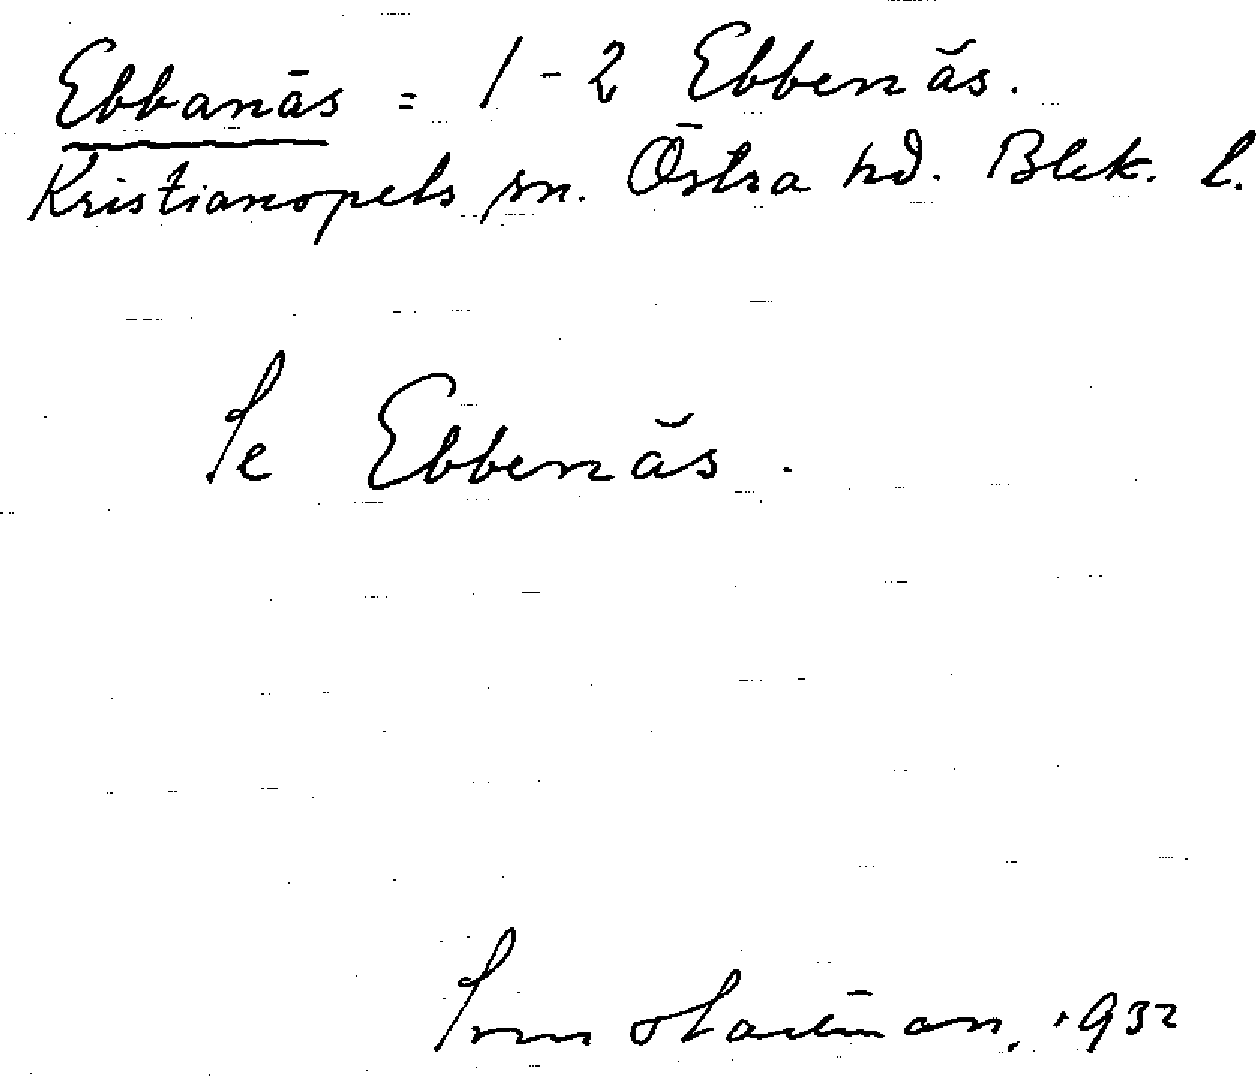 Ebbanäs = 1-2 Ebbenäs.
Kristianopels sn. Östra hd. Blek. l.
Se Ebbenäs.
1932